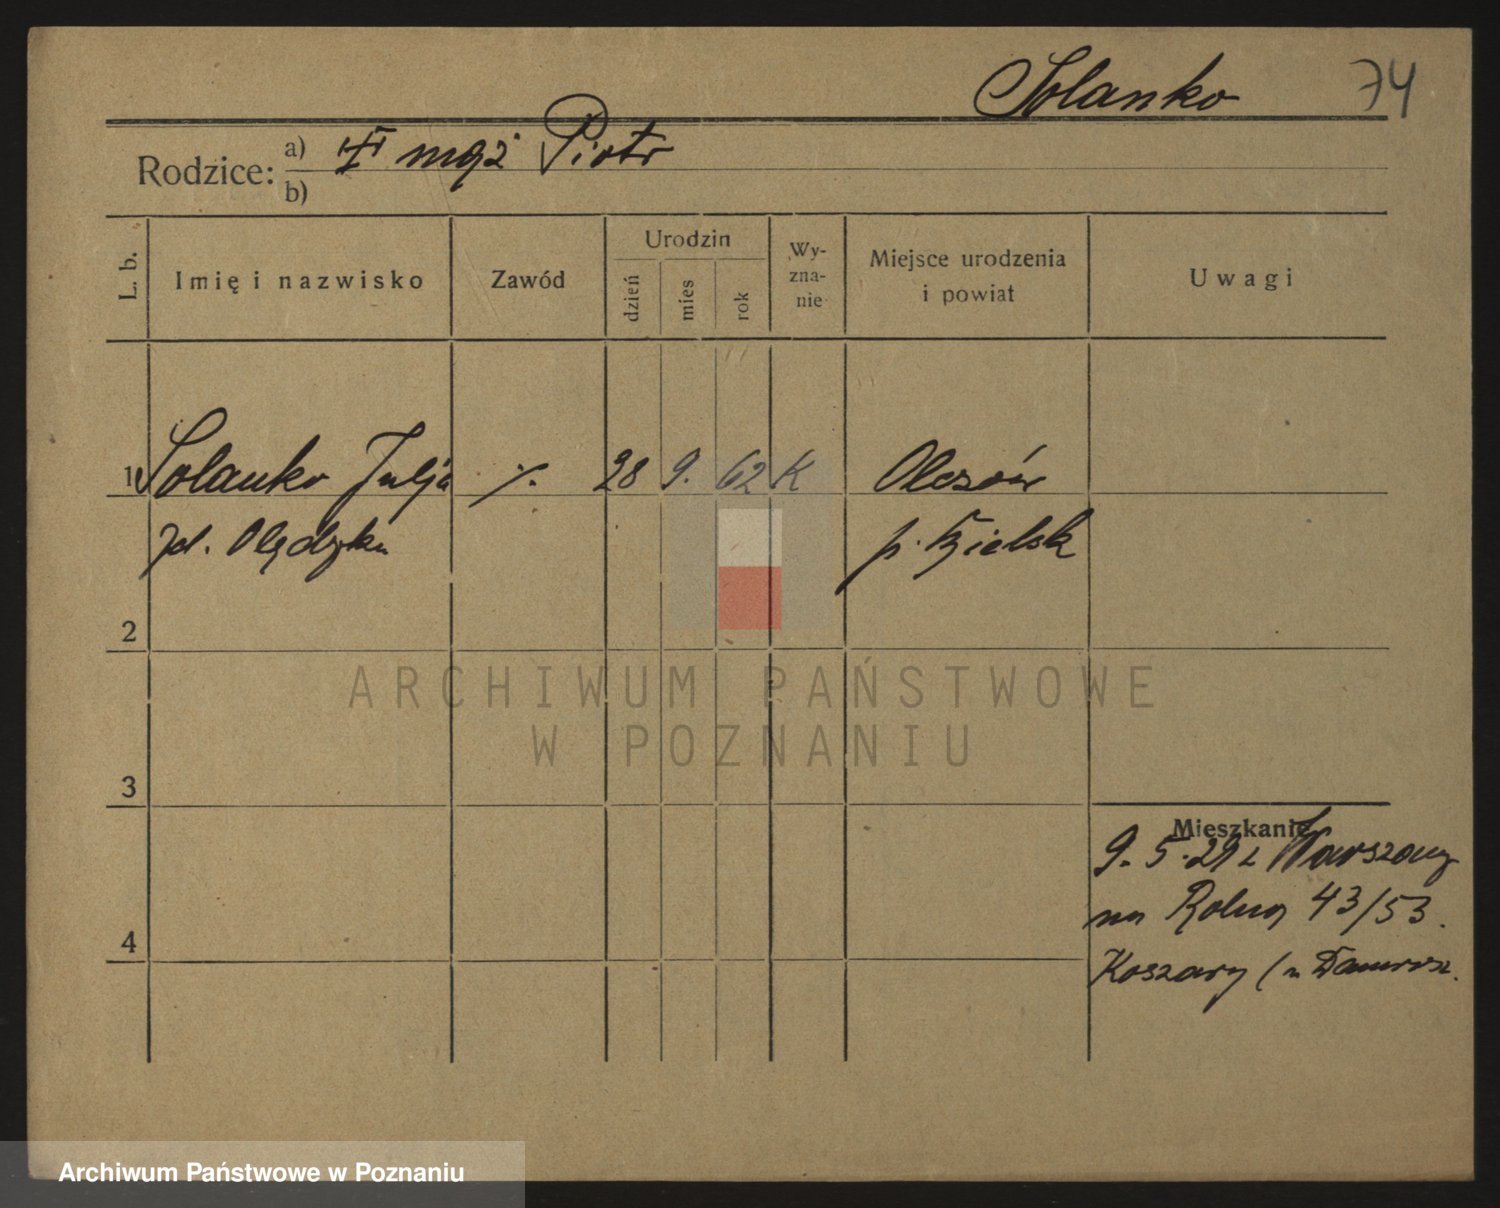 Solanko 74
Rodzice: a) II mąż Piotr
b)
L. b. Imię i nazwisko Zawód Urodzin dzień mies rok Wyznanie Miejsce urodzenia i powiat Uwagi
1 Solanko Julja ./. 28 9. 62 K Olszów
zd. Olędzka p. Bielsk
2
ARCHIWUM PAŃSTWOWE
W POZNANIU
3
Mieszkanie
9. 5. 29 z Warszawy
na Rolną 43/53.
4
Koszary (u
Archiwum Państwowe w Poznaniu